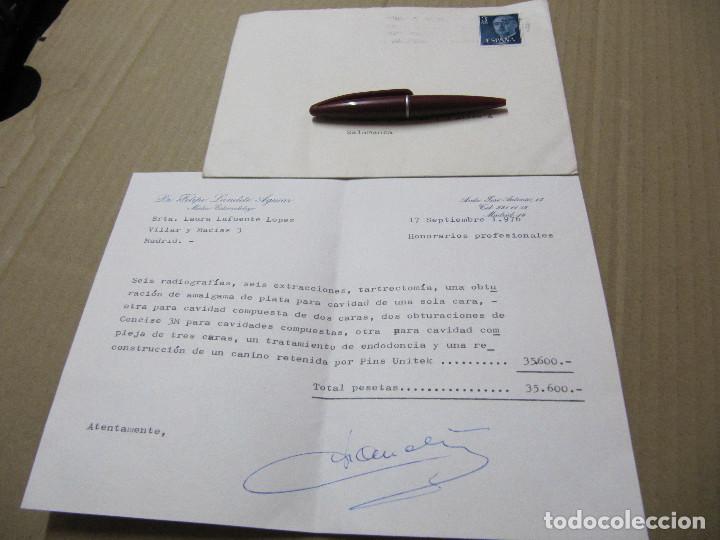 ESPAÑA
Salamanca
Dr. Felipe
Médico Estomatólogo
Madrid
Srta. Laura Lafuente Lopez
Villar y Macías 3
Madrid. -
17 Septiembre 1.976
Honorarios profesionales
Seis radiografías, seis extracciones, tartrectomía, una obtu
ración de amalgama de plata para cavidad de una sola cara, -
otra para cavidad compuesta de dos caras, dos obturaciones de
Concise 3M para cavidades compuestas, otra para cavidad com
pleja de tres caras, un tratamiento de endodoncia y una re
construcción de un canino retenida por Pins Unitek .......... 35.600.-
Total pesetas................ 35.600.-
Atentamente,
todocoleccion